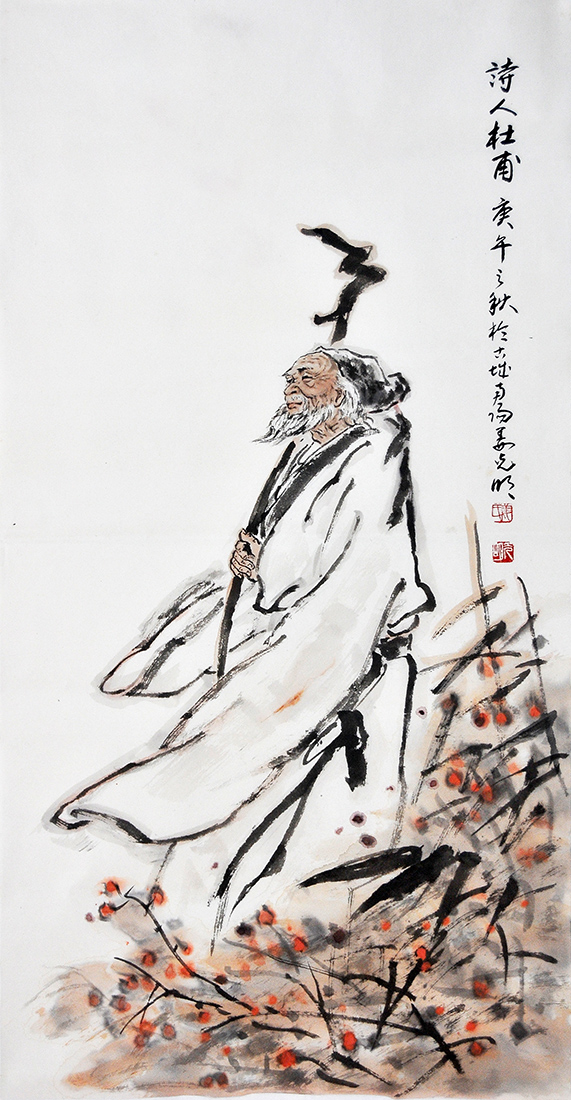 詩人杜甫 庚午之秋於古城南阳姜光明